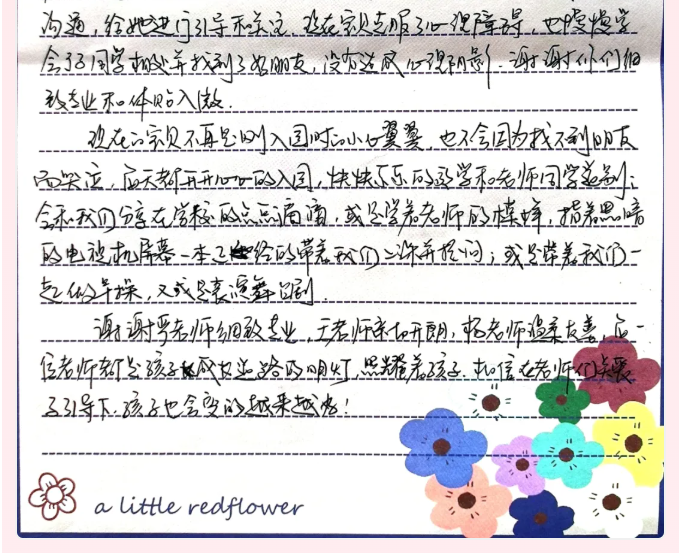 沟通，给她进行引导和关注．现在宝贝克服了心理障碍，也慢慢学
会了与同学相处并找到了好朋友，没有造成心理阴影．谢谢你们细
致专业和体贴入微．
现在的宝贝不再是刚入园时的小心翼翼，也不会因为找不到朋友
而哭泣，每天都开开心心的入园，快快乐乐的放学和老师同学道别；
会和我们分享在学校的点点滴滴，或是学着老师的模样，指着黑暗
的电视机屏幕一本正经的带着我们识并提问；或是带着我们一
起做早操，又或是表演舞台剧．
谢谢老师细致专业，王老师亲切开朗，杨老师温柔友善，每一
位老师都是孩子成长道路的明灯，照耀着孩子．相信在老师们关爱
与引导下，孩子也会变的越来越好！
a little redflower